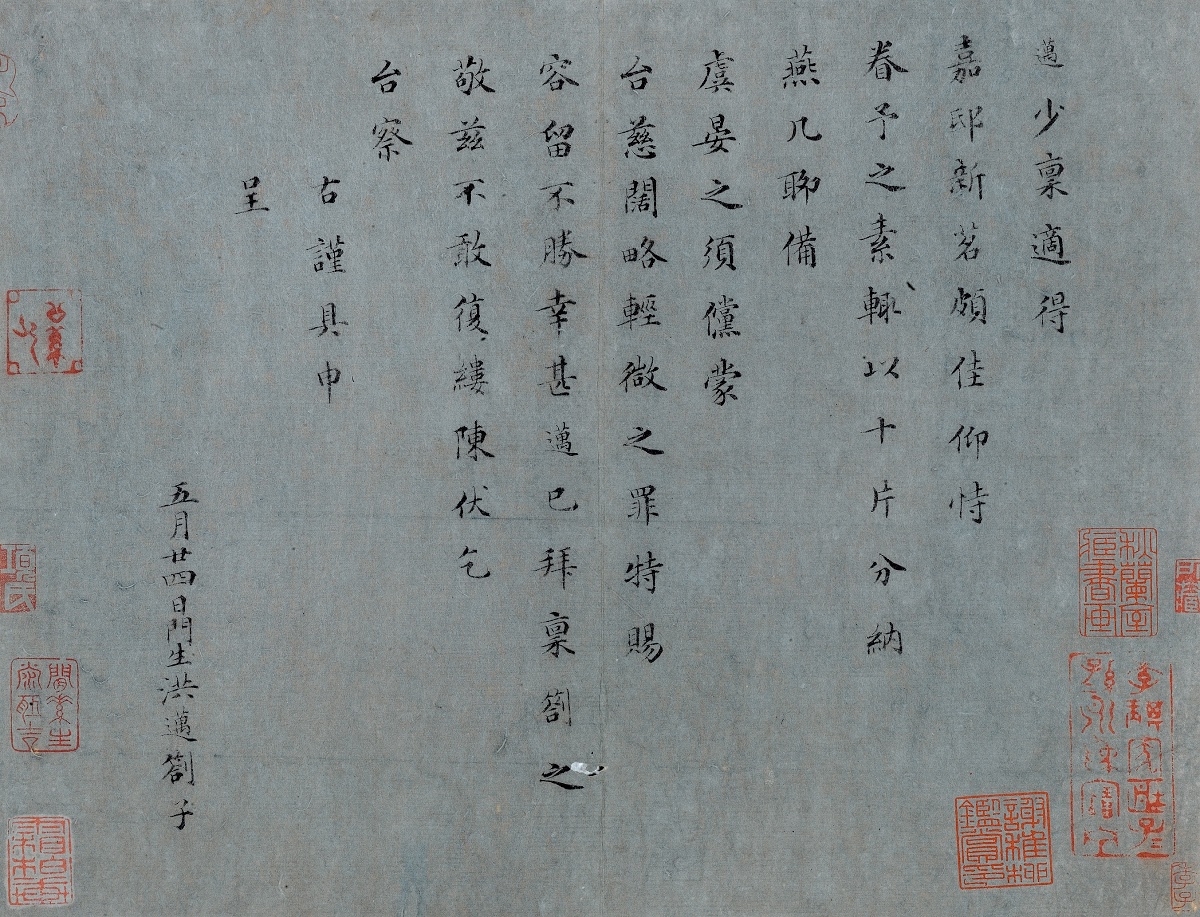 邁少稟適得
嘉邸新茗頗佳仰恃
眷予之素輙以十片分納
燕几聊備
虞晏之須儻蒙
台慈闊略輕微之罪特賜
容留不勝幸甚邁已拜稟劄之
敬茲不敢復縷陳伏乞
台察
右謹具申
呈
五月廿四日門生洪邁劄子
秋蘭室
謝稚柳
鑑賞印